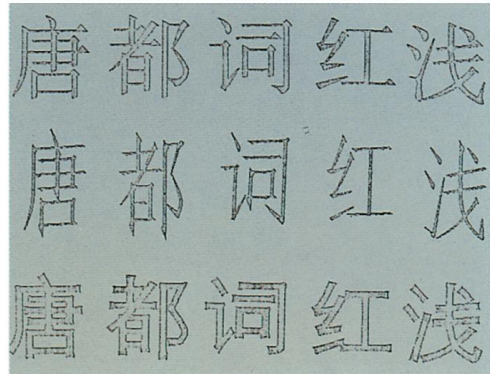 唐都词红浅
唐都词红浅
唐都词红浅